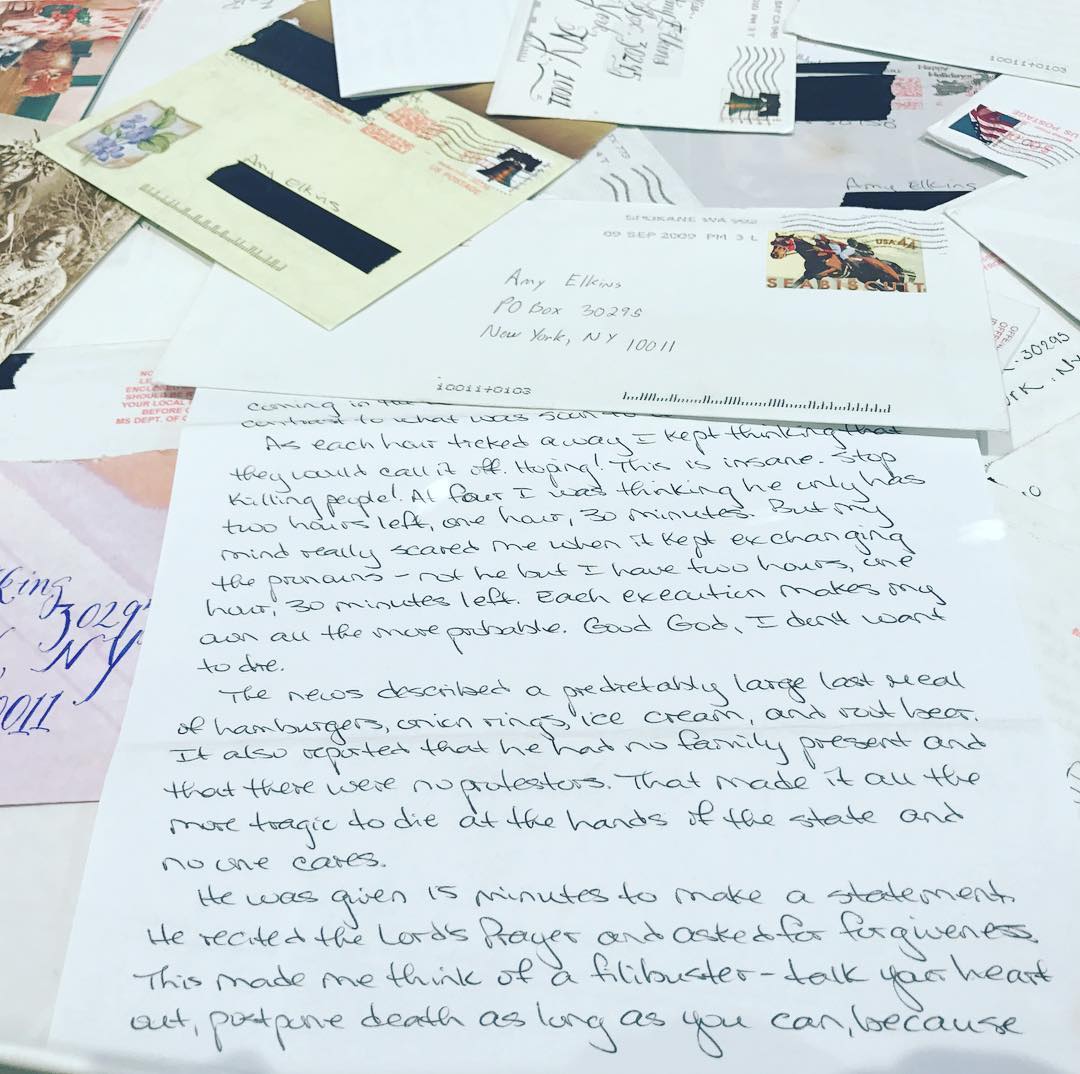 Amy Elkins
US POSTAGE
Happy
Holidays!
10011+0103
US POSTAGE
Amy Elkins
SPOKANE WA 992
09 SEP 2009 PM 3 L
USA 44
SEABISCUIT
Amy Elkins
PO Box 30295
New York, NY 10011
10011+0103
30295
MS DEPT. OF
YOUR LOCAL
BEFORE
30295
NY
10011
coming in the
contrast to what was
As each hour ticked away I kept thinking that
they would call it off. Hoping! This is insane. Stop
killing people! At four I was thinking he only has
two hours left, one hour, 30 minutes. But my
mind really scared me when it kept exchanging
the pronouns - not he but I have two hours, one
hour, 30 minutes left. Each execution makes my
own all the more probable. Good God, I don't want
to die.
The news described a predictably large last meal
of hamburgers, onion rings, ice cream, and root beer.
It also reported that he had no family present and
that there were no protestors. That made it all the
more tragic to die at the hands of the state and
no one cares.
He was given 15 minutes to make a statement.
He recited the Lord's Prayer and asked for forgiveness.
This made me think of a filibuster - talk your heart
out, postpone death as long as you can, because